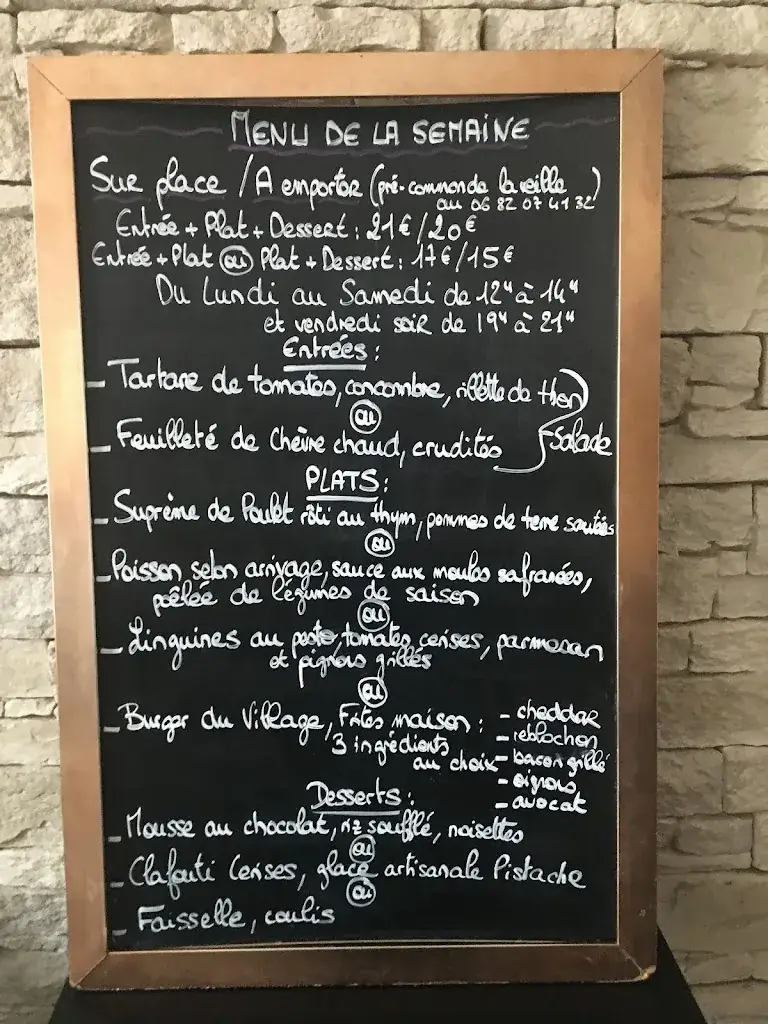 MENU DE LA SEMAINE
Sur place / A emporter (pré-commande la veille)
au 06 82 07 41 32
Entrée + Plat + Dessert : 21€/20€
Entrée + Plat ou Plat + Dessert : 17€/15€
Du Lundi au Samedi de 12H à 14H
et vendredi soir de 19H à 21H
Entrées :
- Tartare de tomates, concombre, rillette de thon
ou
Salade
- Feuilleté de Chèvre chaud, crudités
PLATS :
- Suprême de Poulet rôti au thym, pommes de terre sautées
ou
- Poisson selon arrivage, sauce aux moules safranées,
poêlée de légumes de saison
ou
- Linguines au pesto, tomates cerises, parmesan
et pignons grillés
ou
- Burger du Village, Frites maison : - cheddar
3 ingrédients - reblochon
au choix - bacon grillé
- oignons
- avocat
Desserts :
- Mousse au chocolat, riz soufflé, noisettes
ou
- Clafouti Cerises, glace artisanale Pistache
ou
- Faisselle, coulis